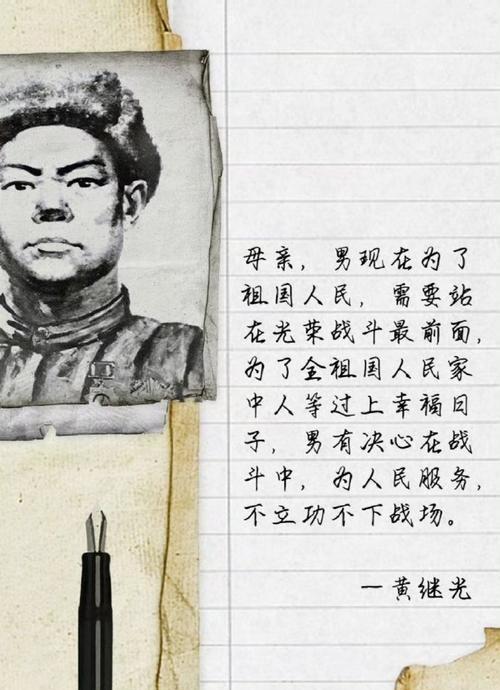 母亲，男现在为了
祖国人民，需要站
在光荣战斗最前面，
为了全祖国人民家
中人等过上幸福日
子，男有决心在战
斗中，为人民服务，
不立功不下战场。
—黄继光